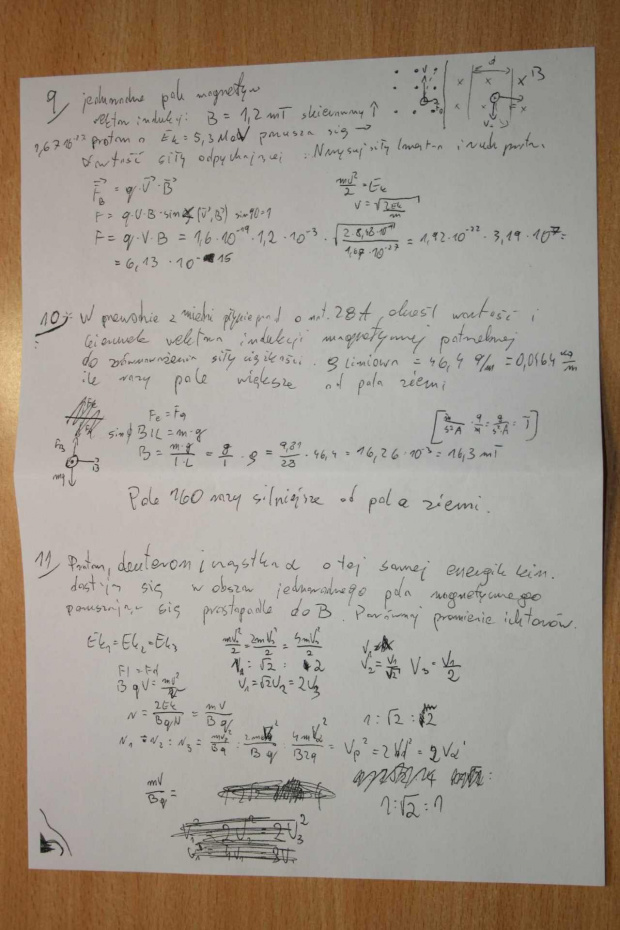 9/ jednorodne pole magnetyczn
wektor indukcji: B = 1,2 mT skierowany ↑
1,67·10⁻²⁷ proton o Ek = 5,3 MeV porusza się →
Wartość siły odpychającej. Narysuj siły i
d
B
F_B = q·V·B
F = q·V·B·sin∢(V,B) sin90=1
mV²/2 = Ek
V = √(2Ek/m)
F = q·V·B = 1,6·10⁻¹⁹·1,2·10⁻³·√(2·8,48·10⁻¹³/1,67·10⁻²⁷) = 1,92·10⁻²²·3,19·10⁷ =
= 6,13·10⁻¹⁵
10/ W przewodzie z miedzi płynie prąd o nat. 28A, określ wartość i
kierunek wektora indukcji magnetycznej potrzebnej
do zrównoważenia siły ciężkości. ρ liniowa = 46,4 g/m = 0,0464 kg/m
ile razy pole większe od pola ziemi
F_B
B
mg
Fe = Fg
sinφ BIL = m·g
B = m·g/I·L = g/I · ρ = 9,81/28 · 46,4 = 16,26·10⁻³ = 16,3 mT
Pole 160 razy silniejsze od pola ziemi.
11/ Proton, deuteron i cząstka α o tej samej energii kin.
dostają się w obszar jednorodnego pola magnetycznego
poruszając się prostopadle do B. Porównaj promienie ich torów.
Ek₁ = Ek₂ = Ek₃
mV₁²/2 = 2mV₂²/2 = 4mV₃²/2
1 : √2 : 2
V₁ = √2V₂ = 2V₃
V₂ = V₁/√2 V₃ = V₁/2
Fl = Fd
BqV = mV²/r
r = 2Ek/BqV = mV/Bq
1 : √2 : 2
r₁ : r₂ : r₃ =
mV/Bq =
1 : √2 : 1